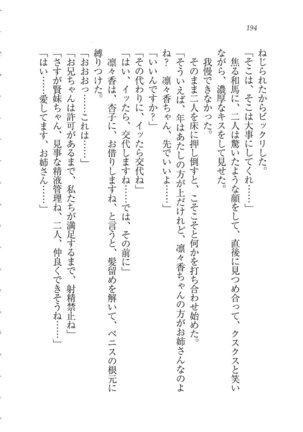 194
ねじられたからビックリした。
「はい、そこは大事にしてくれ……」
焦る和馬に、二人は驚いたような顔をして、直後に見つめ合って、クスクスと笑い
ながら、濃厚なキスをして見せた。
我慢できなかった。
そのまま二人を床に押し倒すと、こそこそと何かを打ち合わせ始めた。
「そういえば、年はあたしの方が上だけれど、凛々香ちゃんの方がお姉さんなのよ
ね？　凛々香ちゃん、先でいいよ……」
「いいんですか？」
「その代わりに、イッたら、交代ね」
「はい、イッたら、交代しますね……では、その前に」
凛々香は、杏子に、お借りしますね、と言うと、髪留めを解いて、ペニスの根元に
縛りつけた。
「おおおっ……これは……」
「お兄ちゃんは許可があるまで、私たちが満足するまで、射精禁止ね」
「さすが賢妹ちゃん、見事な精液管理ね、二人、仲良くできそうね……」
「はい……愛してます、お姉さん……」